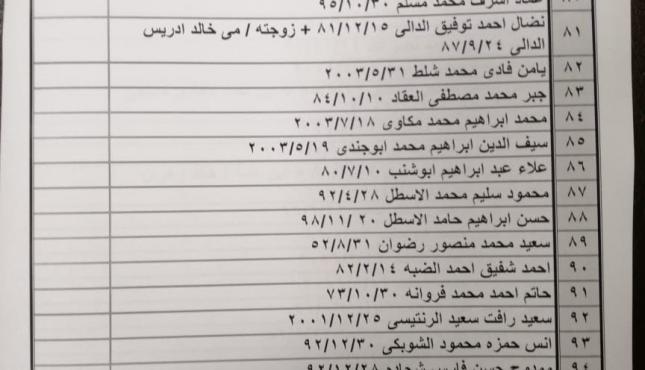 عماد اشرف محمد مسلم ٩٥/١٠/٣٠
٨١ نضال احمد توفيق الدالى ٨١/١٢/١٥ + زوجته / مى خالد ادريس
الدالى ٨٧/٩/٢٤
٨٢ يامن فادى محمد شلط ٢٠٠٣/٥/٣١
٨٣ جبر محمد مصطفى العقاد ٨٤/١٠/١٠
٨٤ محمد ابراهيم محمد مكاوى ٢٠٠٣/٧/١٨
٨٥ سيف الدين ابراهيم محمد ابوجندى ٢٠٠٣/٥/١٩
٨٦ علاء عبد ابراهيم ابوشنب ٨٠/٧/١٠
٨٧ محمود سليم محمد الاسطل ٩٢/٤/٢٨
٨٨ حسن ابراهيم حامد الاسطل ٢٠ /٩٨/١١
٨٩ سعيد محمد منصور رضوان ٥٢/٨/٣١
٩٠ احمد شفيق احمد الضبه ٨٢/٢/١٤
٩١ حاتم احمد محمد فروانه ٧٣/١٠/٣٠
٩٢ سعيد رافت سعيد الرنتيسى ٢٠٠١/١٢/٢٥
٩٣ انس حمزه محمود الشوبكى ٩٢/١٢/٣٠
٩٤ حسن فارس شحاده ٩٢/١٢/٢٨